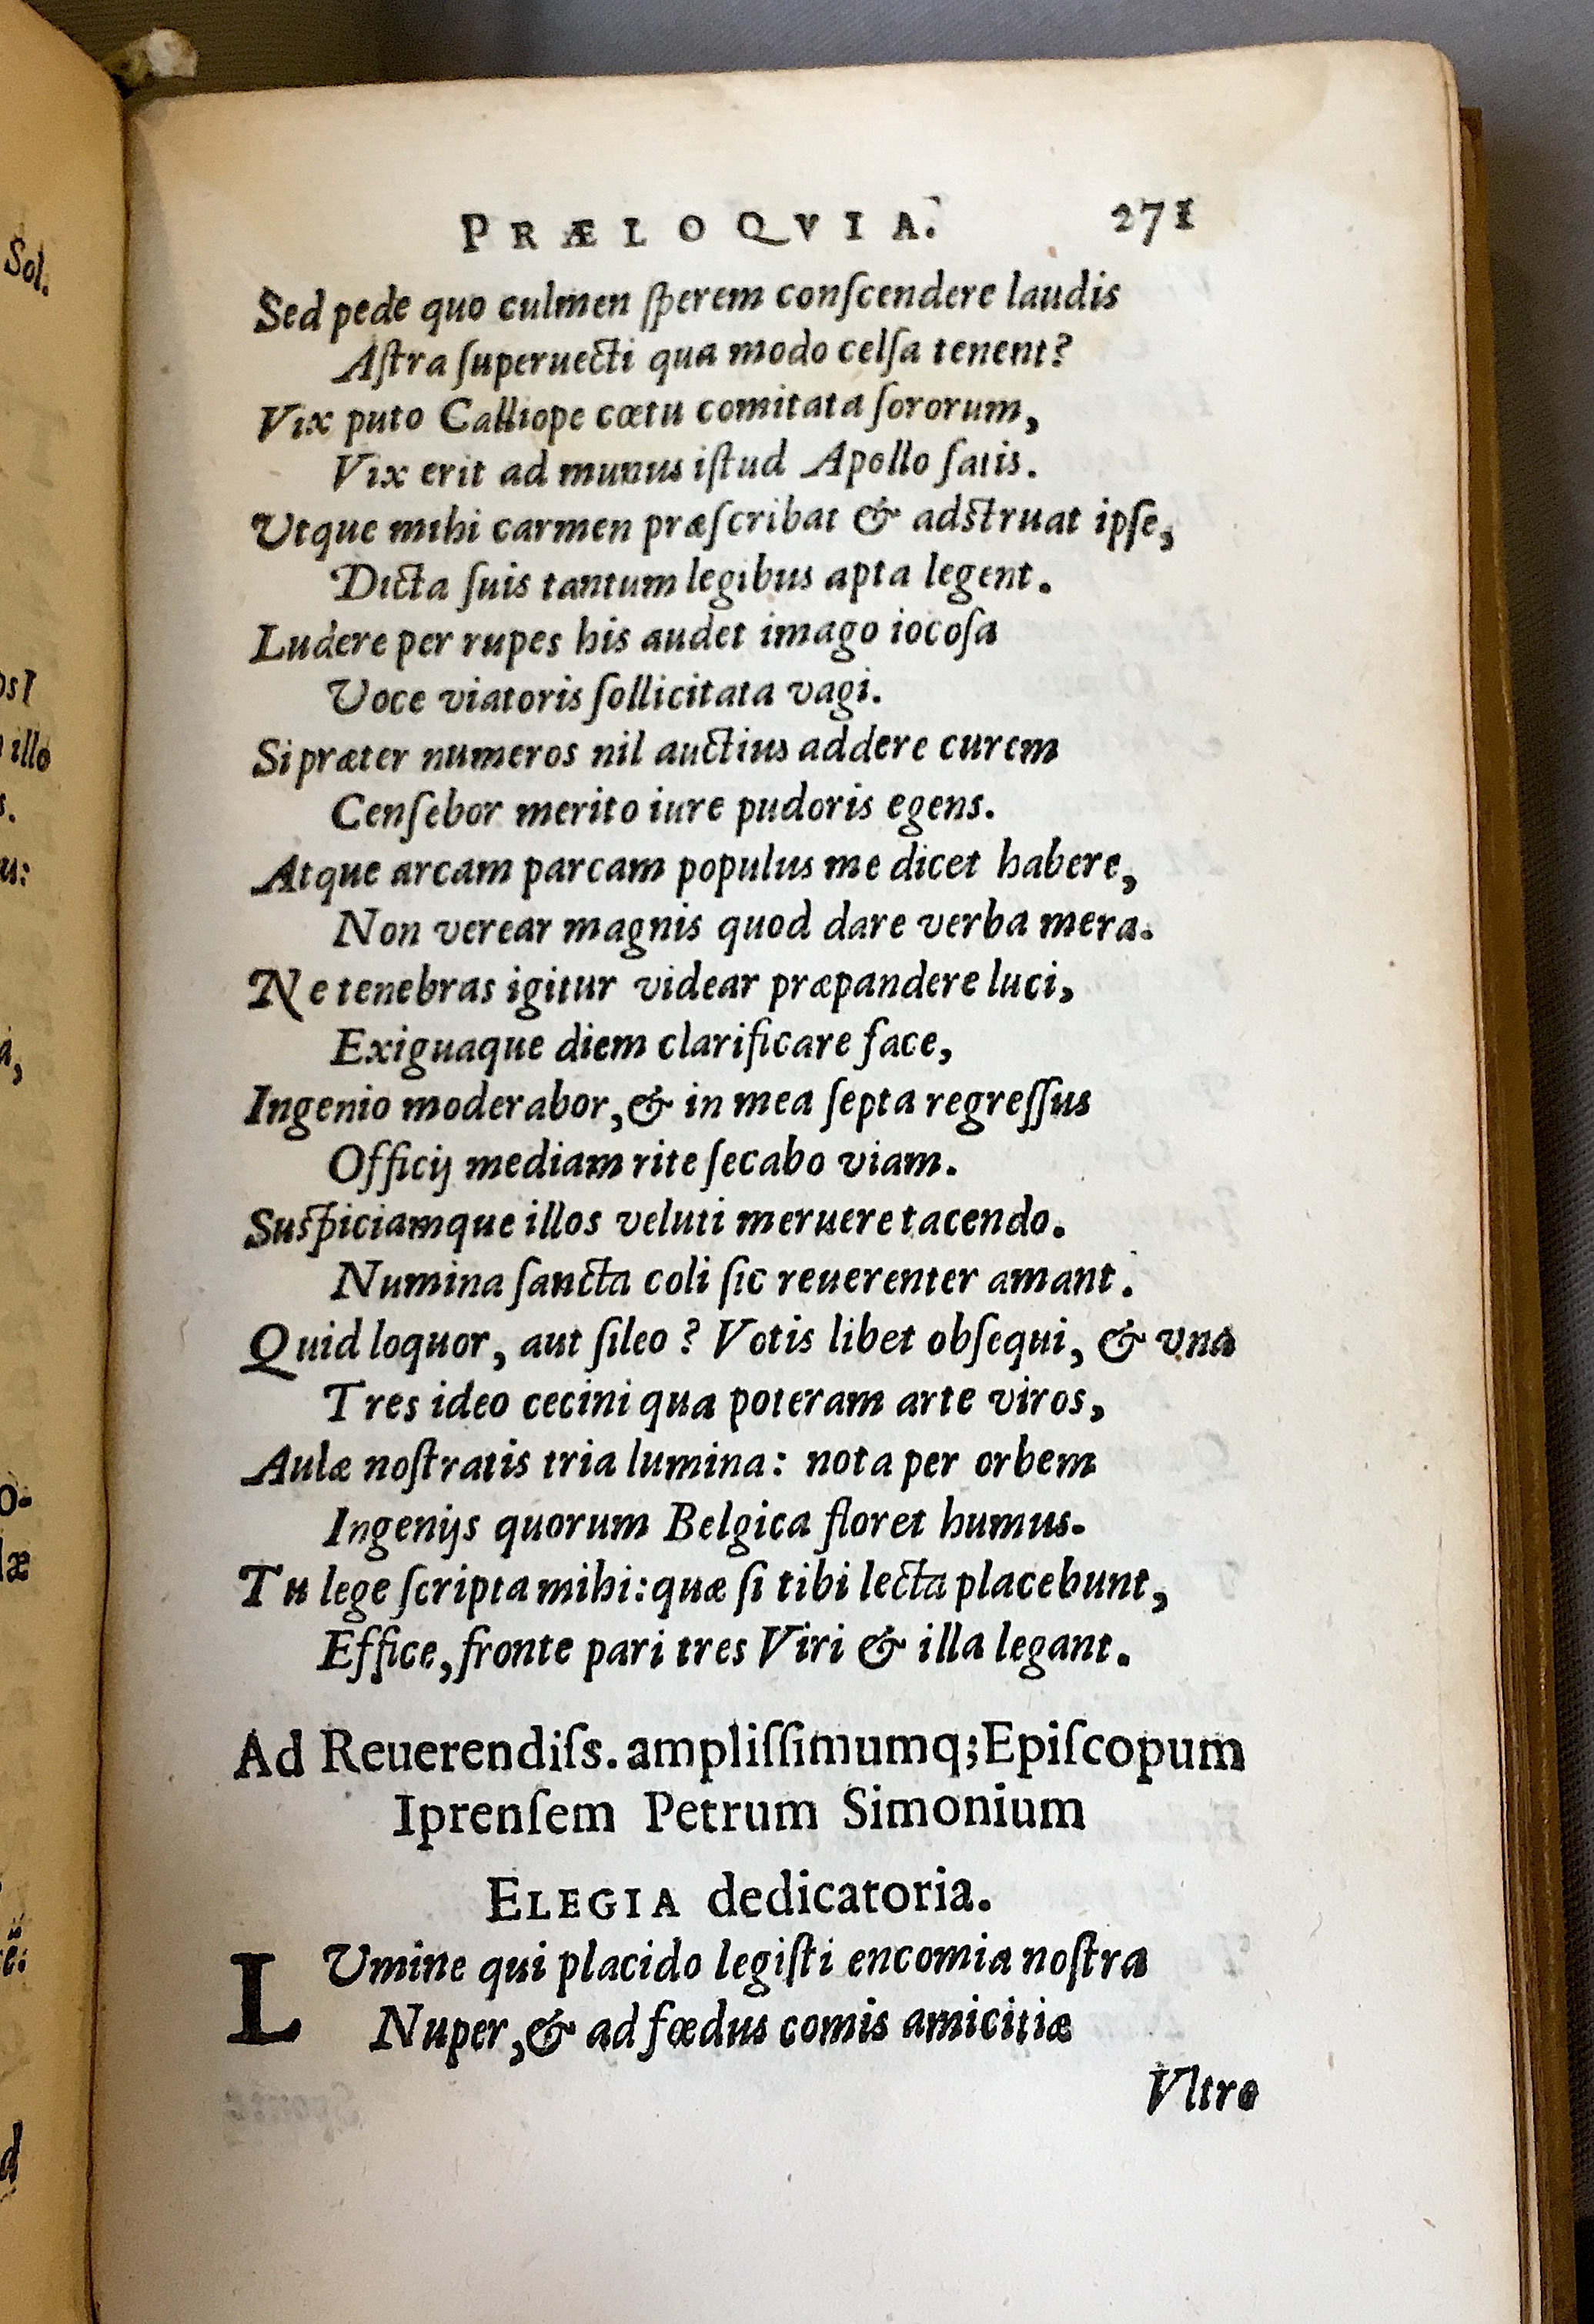 PRÆLOQVIA. 271
Sed pede quo culmen ſperem conſcendere laudis
Aſtra ſuperuecti qua modo celſa tenent?
Vix puto Calliope cœtu comitata ſororum,
Vix erit ad munus iſtud Apollo ſatis.
Utque mihi carmen præſcribat & adstruat ipſe,
Dicta ſuis tantum legibus apta legent.
Ludere per rupes his audet imago iocoſa
Uoce viatoris ſollicitata vagi.
Si præter numeros nil auctius addere curem
Cenſebor merito iure pudoris egens.
Atque arcam parcam populus me dicet habere,
Non verear magnis quod dare verba mera.
Ne tenebras igitur videar præpandere luci,
Exiguaque diem clarificare face,
Ingenio moderabor, & in mea ſepta regreſſus
Officij mediam rite ſecabo viam.
Suspiciamque illos veluti meruere tacendo.
Numina ſancta coli ſic reuerenter amant.
Quid loquor, aut ſileo? Votis libet obſequi, & vna
Tres ideo cecini qua poteram arte viros,
Aulæ noſtratis tria lumina: nota per orbem
Ingenijs quorum Belgica floret humus.
Tu lege ſcripta mihi: quæ ſi tibi lecta placebunt,
Effice, fronte pari tres Viri & illa legant.
Ad Reuerendiſs. ampliſſimumq; Epiſcopum
Iprenſem Petrum Simonium
ELEGIA dedicatoria.
LUmine qui placido legiſti encomia noſtra
Nuper, & ad fœdus comis amicitiæ
Vltro